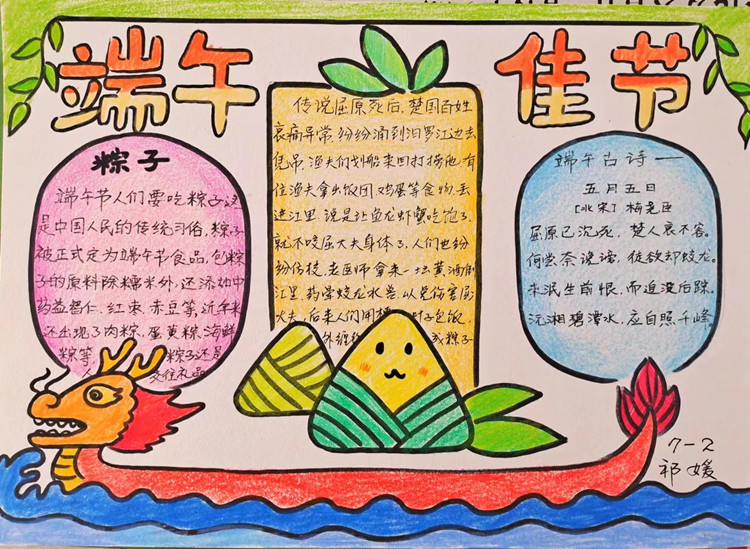 端午佳节
粽子
端午节人们要吃粽子这
是中国人民的传统习俗,粽子
被正式定为端午节食品,包粽
子的原料除糯米外,还添加中
药益智仁,红枣,赤豆等,近年来
还出现了肉粽,蛋黄粽,海鲜
粽等 粽子还是
人 交往礼品
传说屈原死后,楚国百姓
哀痛异常,纷纷涌到汨罗江边去
凭吊,渔夫们划船来回打捞他,有
位渔夫拿出饭团,鸡蛋等食物,丢
进江里,说是让鱼龙虾蟹吃饱了,
就不咬屈大夫身体了,人们也纷
纷仿技,老医师拿来一坛黄酒倒
江里,药晕蛟龙水兽,以免伤害屈
大夫,后来人们用 叶子包饭,
外缠 成粽子
端午古诗一
五月五日
[北宋] 梅尧臣
屈原已沉死,楚人哀不容。
何尝奈谗谤,徒欲却蛟龙。
未泯生前恨,而追没后踪。
沅湘碧潭水,应自照千峰。
7-2
祁媛